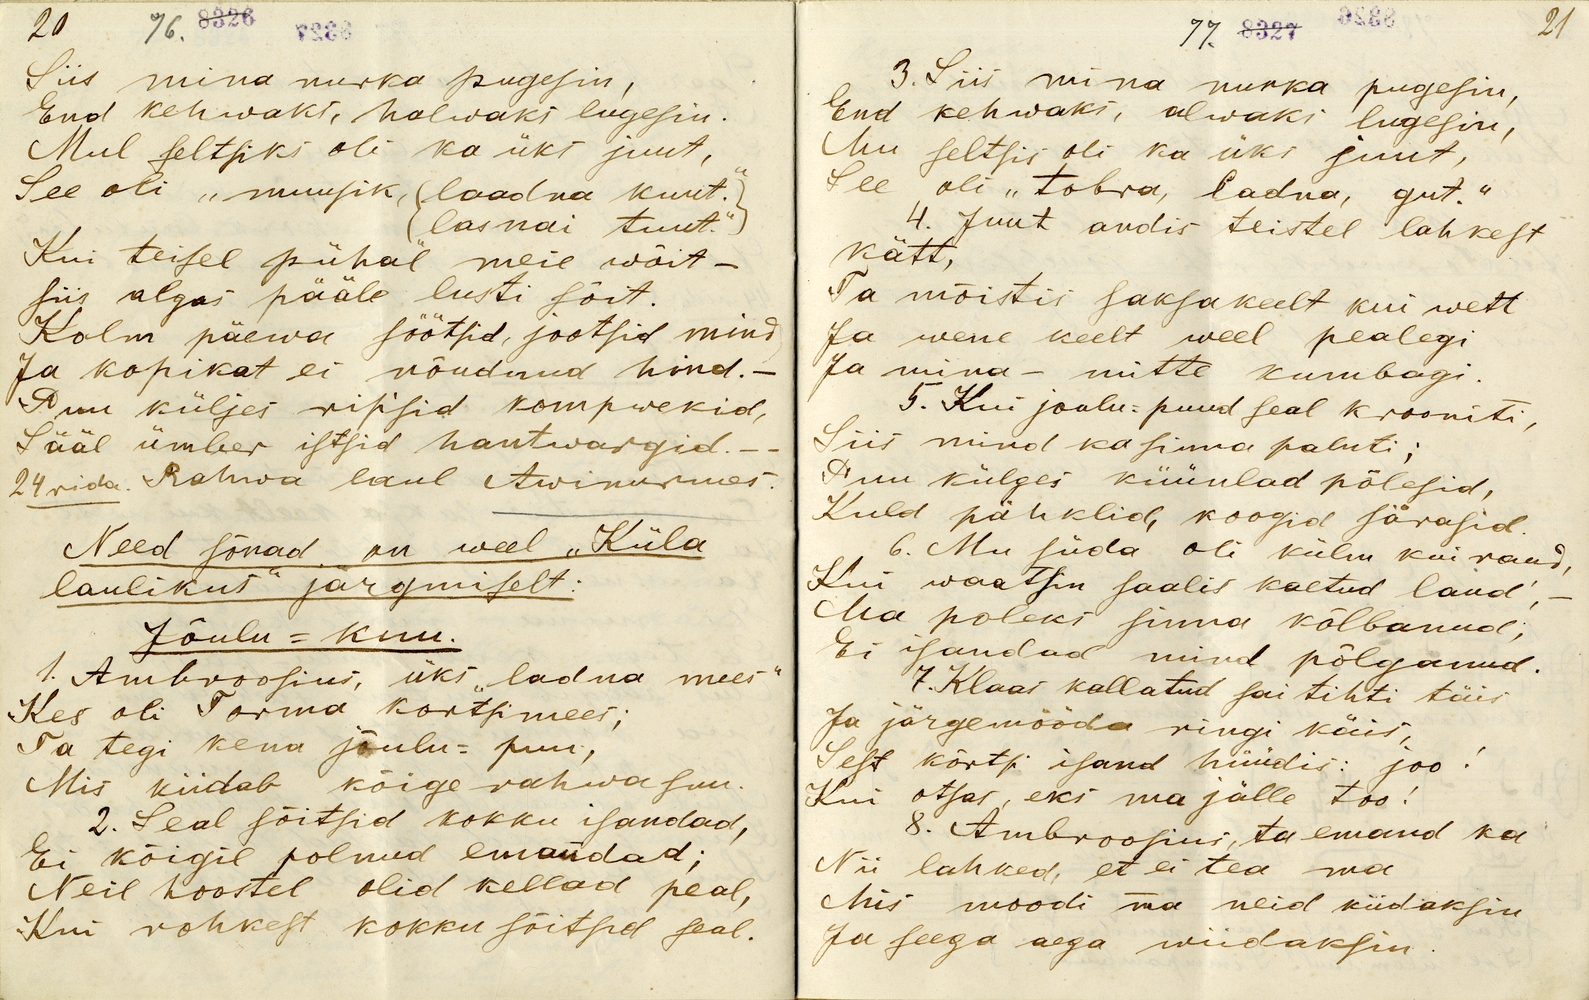 20 76. 8326 7238
Siis mina nurka pugesin,
End kehwaks, halwaks lugesin.
Mul seltsiks oli ka üks juut,
See oli „muusik, laadna kuut."
lasnai tuut."
Kui teisel pühal meie wõit –
siis algas pääle lusti sõit.
Kolm päewa söötsid, jootsid mind
Ja kopikat ei nõudnud hind. –
Puu küljes rippsid kompwekid,
Sääl ümber istsid hantwargid. – –
24 rida. Rahwa laul Awinurmes.
Need sõnad on weel „Küla
laulikus" järgmiselt:
Jõulu = kuu.
1. Ambroosius, üks „ladna mees"
Kes oli Torma kõrtsimees;
Ta tegi kena jõulu = puu,
Mis kiidab kõige rahwa suu.
2. Seal sõitsid kokku isandad,
Ei kõigil polnud emandad;
Neil hoostel olid kellad peal,
Kui rohkest kokku sõitsid seal.
77. 8327 21
3. Siis mina nurka pugesin,
End kehwaks, alwaks lugesin,
Mu seltsis oli ka üks juut,
See oli „tobra, ladna, gut."
4. Juut andis teistel lahkest
kätt,
Ta mõistis saksakeelt kui wett
Ja wene keelt weel pealegi
Ja mina – mitte kumbagi.
5. Kui joulu = puud seal krooniti,
Siis mind ka sinna paluti;
Puu külges küünlad põlesid,
Kuld pähklid, koogid särasid.
6. Mu süda oli külm kui raud,
Kui waatsin saalis kaetud laud, –
Ma poleks sinna kõlbanud;
Ei isandad mind põlganud.
7. Klaas kallatud sai tihti täis
Ja järgemööda ringi käis,
Sest kõrtsi isand hüüdis: joo!
Kui otsas, eks ma jälle too!
8. Ambroosius, ta emand ka
Nii lahked, et ei tea ma
Mis moodi ma neid kiidaksin
Ja seega aega wiidaksin.